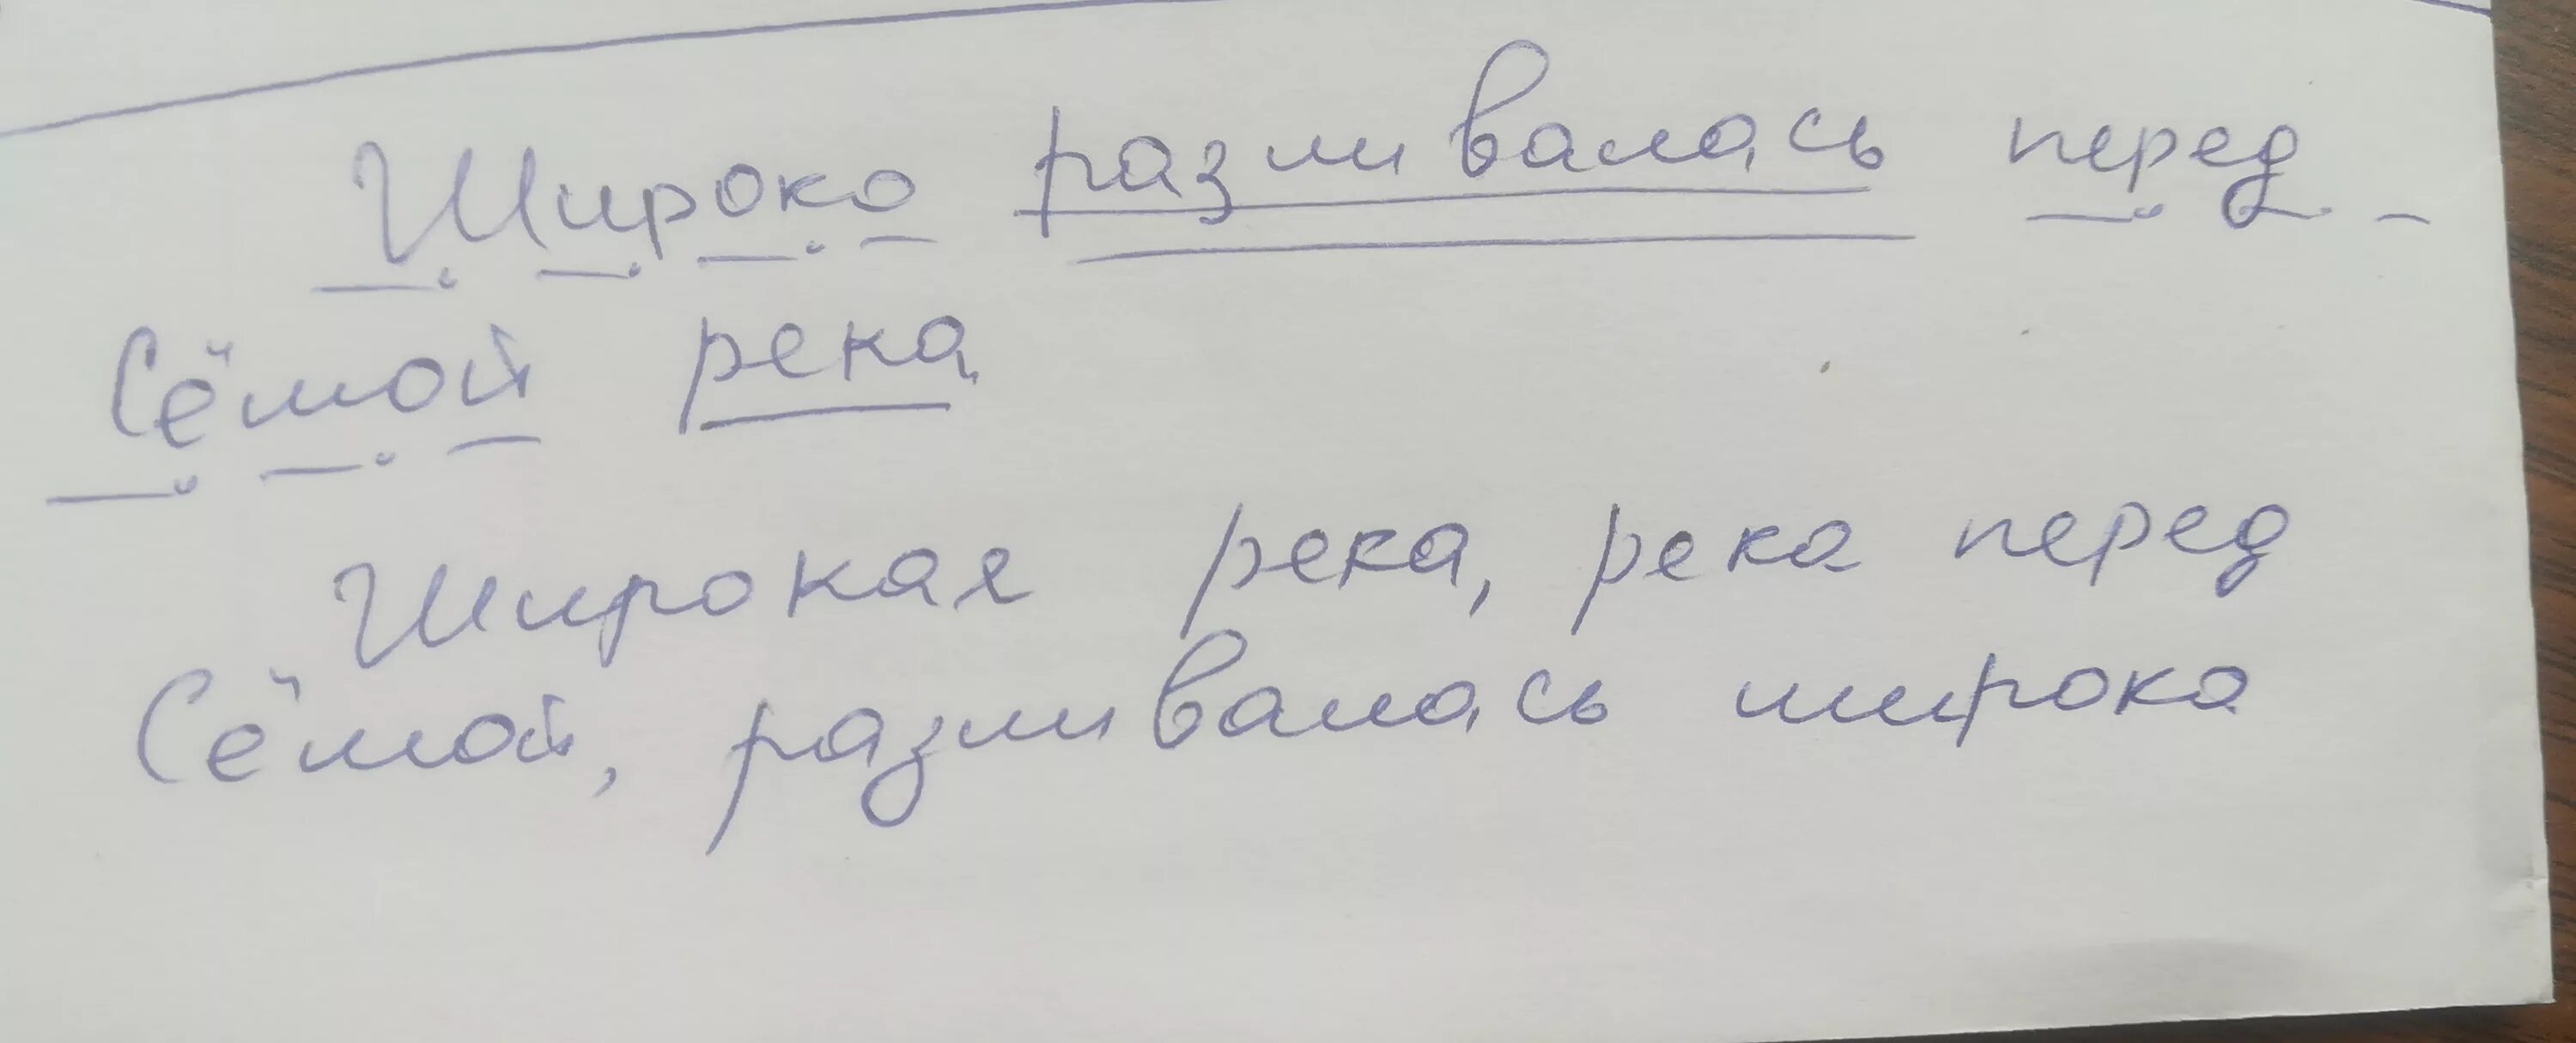 Широко разливалась перед
Сёмой река
Широкая река, река перед
Сёмой, разливалась широко